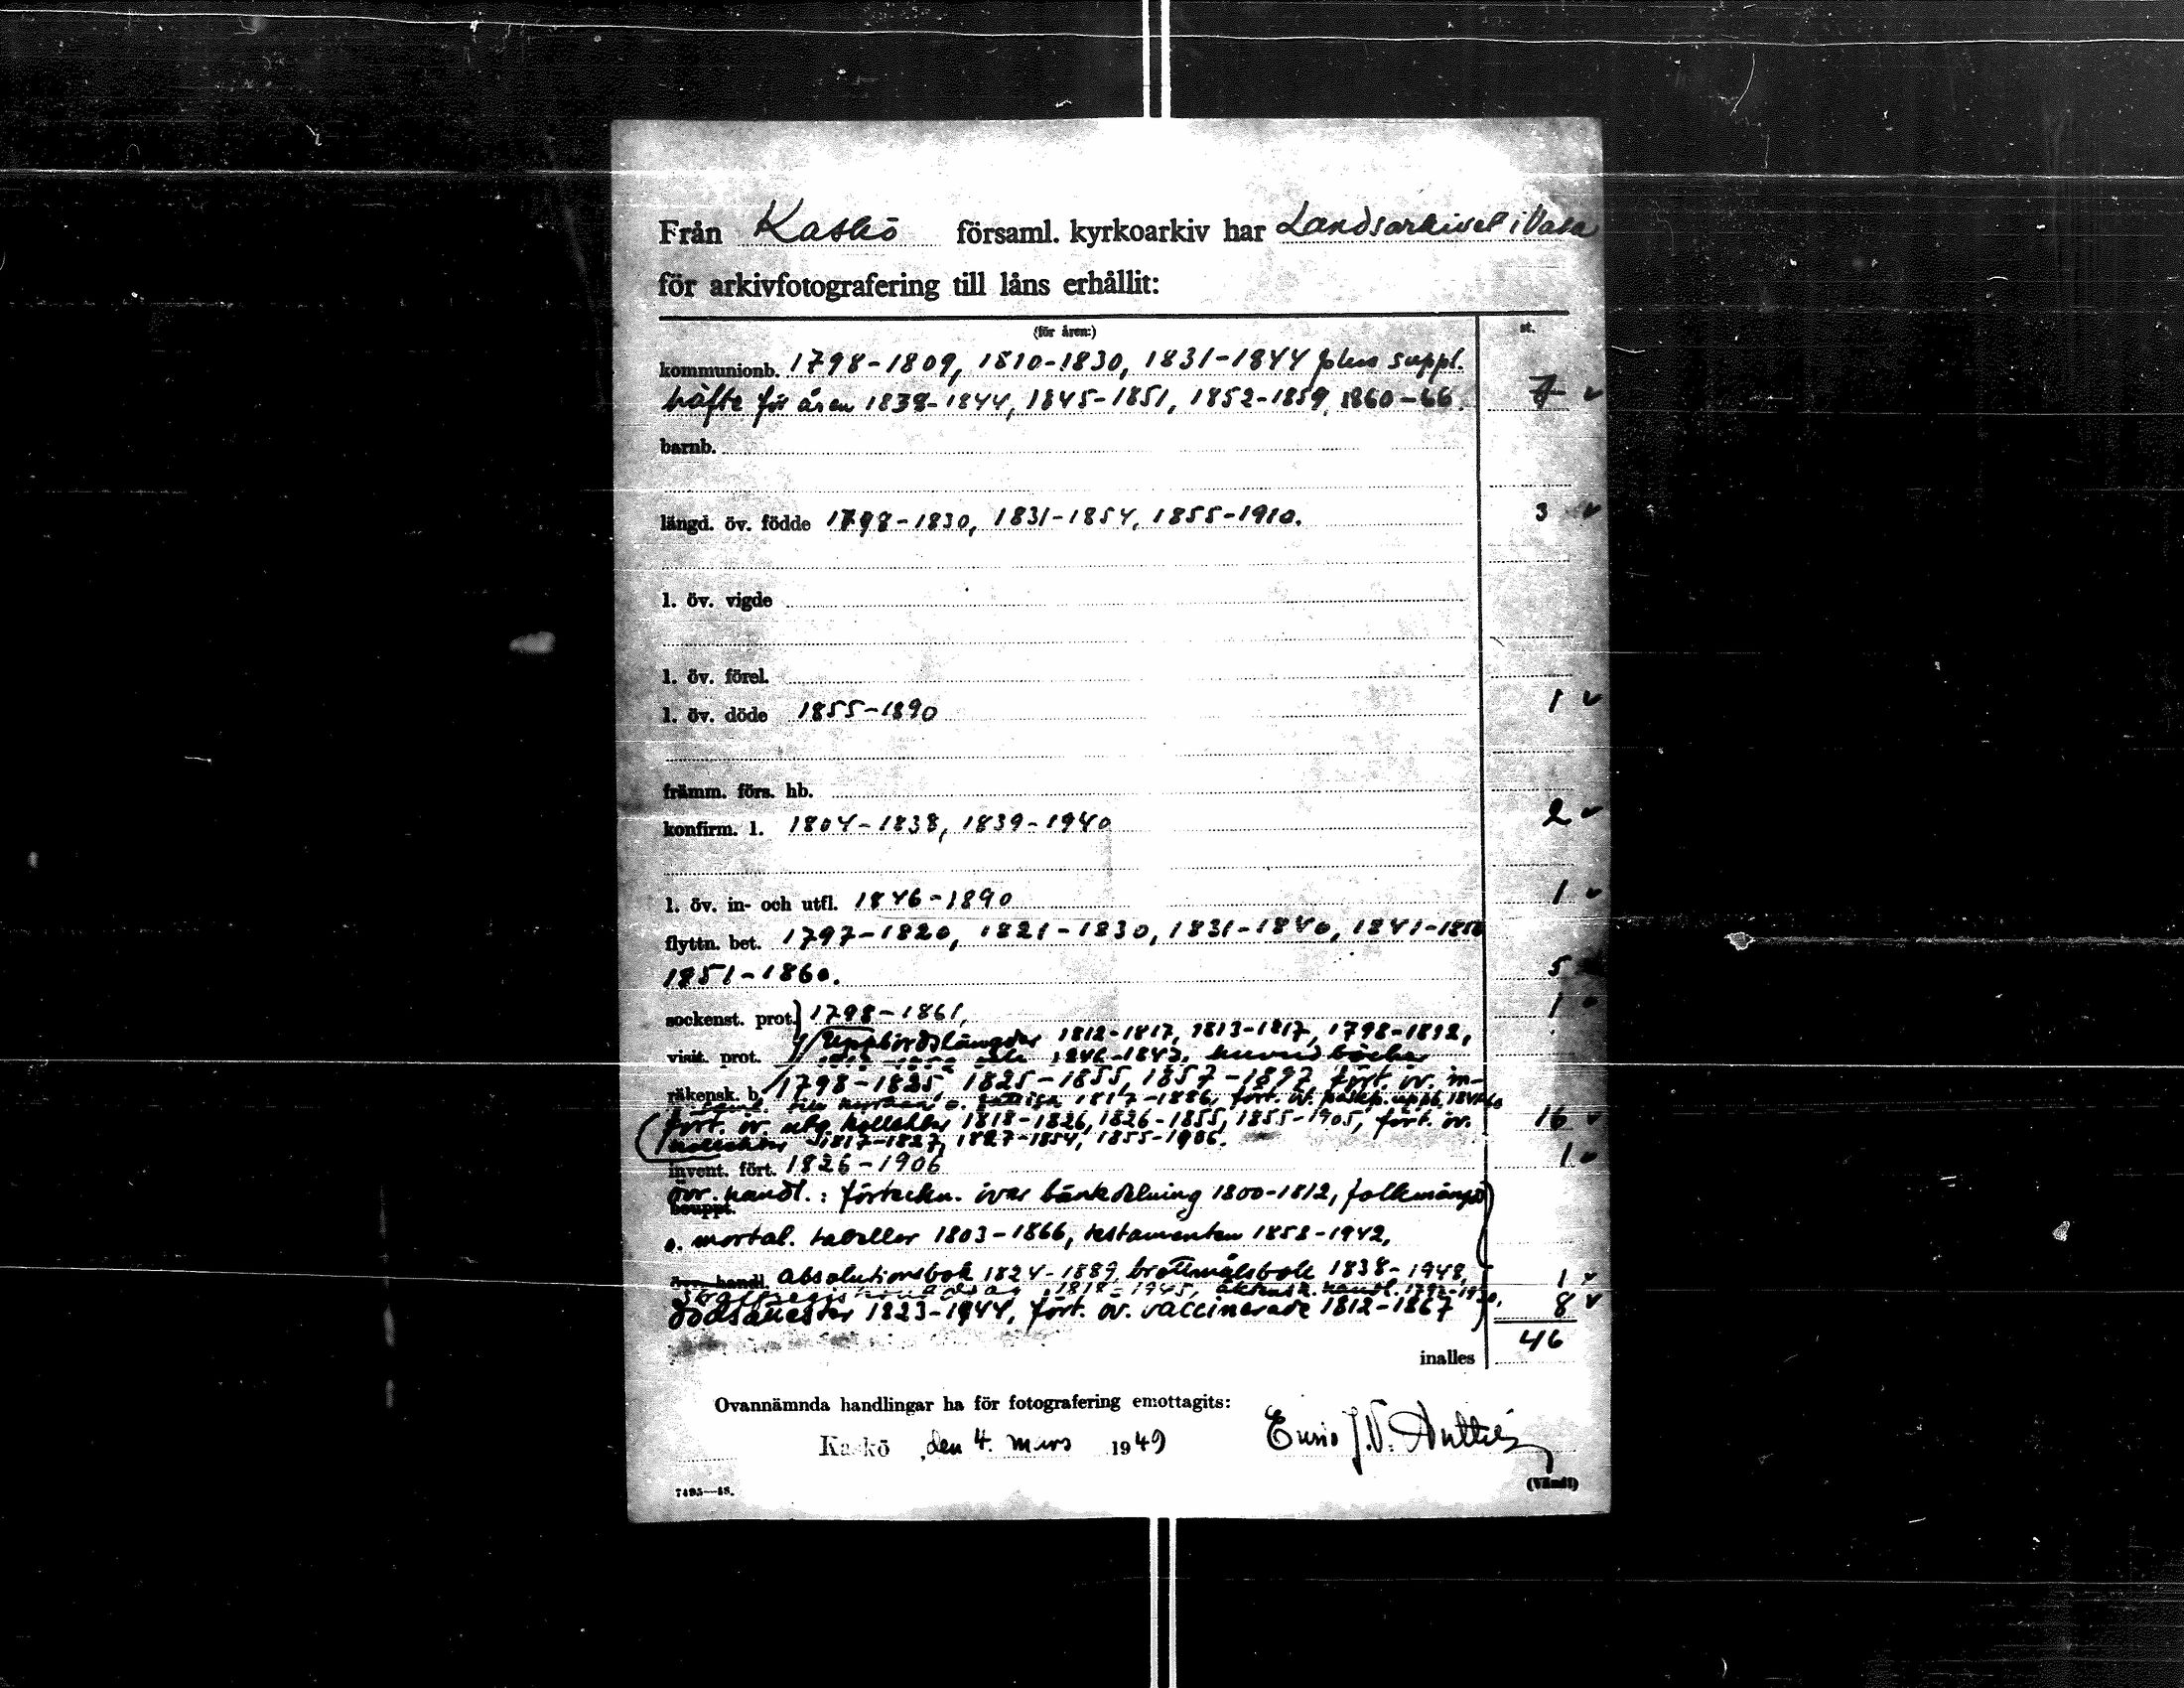 Från Kaskö församl. kyrkoarkiv har Landsarkivet i Vasa
för arkivfotografering till låns erhållit:
(för åren:) st.
kommunionb. 1798-1809, 1810-1830, 1831-1844 plus suppl.
häfte för åren 1838-1844, 1845-1851, 1852-1859, 1860-66. 7 v
barnb.
längd. öv. födde 1798-1830, 1831-1854, 1855-1910. 3 v
l. öv. vigde
l. öv. förel.
l. öv. döde 1855-1890 1 v
främm. förs. hb.
konfirm. l. 1804-1838, 1839-1940 2 v
l. öv. in- och utfl. 1846-1890 1 v
flyttn. bet. 1797-1820, 1821-1830, 1831-1840, 1841-1850
1851-1860. 5
sockenst. prot. 1798-1861, 1
Uppbördslängder 1812-1817, 1813-1817, 1798-1812,
visit. prot. 1842-1843, huvudböcker
räkensk. b. 1798-1825 1825-1855, 1857-1897 fört. öv. in-
till kyrkan o. 1817-1886, fört. öv.
fört. öv. utg. kollekter 1818-1826, 1826-1855, 1855-1905, fört. öv. 16 v
kollekter 1817-1827, 1827-1854, 1855-1906.
invent. fört. 1826-1906 1
övr. handl.: förteckn. över bänkdelning 1800-1812, folkmängd
bouppt.
o. mortal. tabeller 1803-1866, testamenten 1858-1942,
övr. handl. absolutionsbok 1824-1889, brottmålsbok 1838-1948, 1 v
1818-1945, äktensk. handl. 8 v
dödsattester 1823-1944, fört. öv. vaccinerade 1812-1867
46
inalles
Ovannämnda handlingar ha för fotografering emottagits:
Kaskö, den 4. mars 1949
7495—48. (Vänd!)